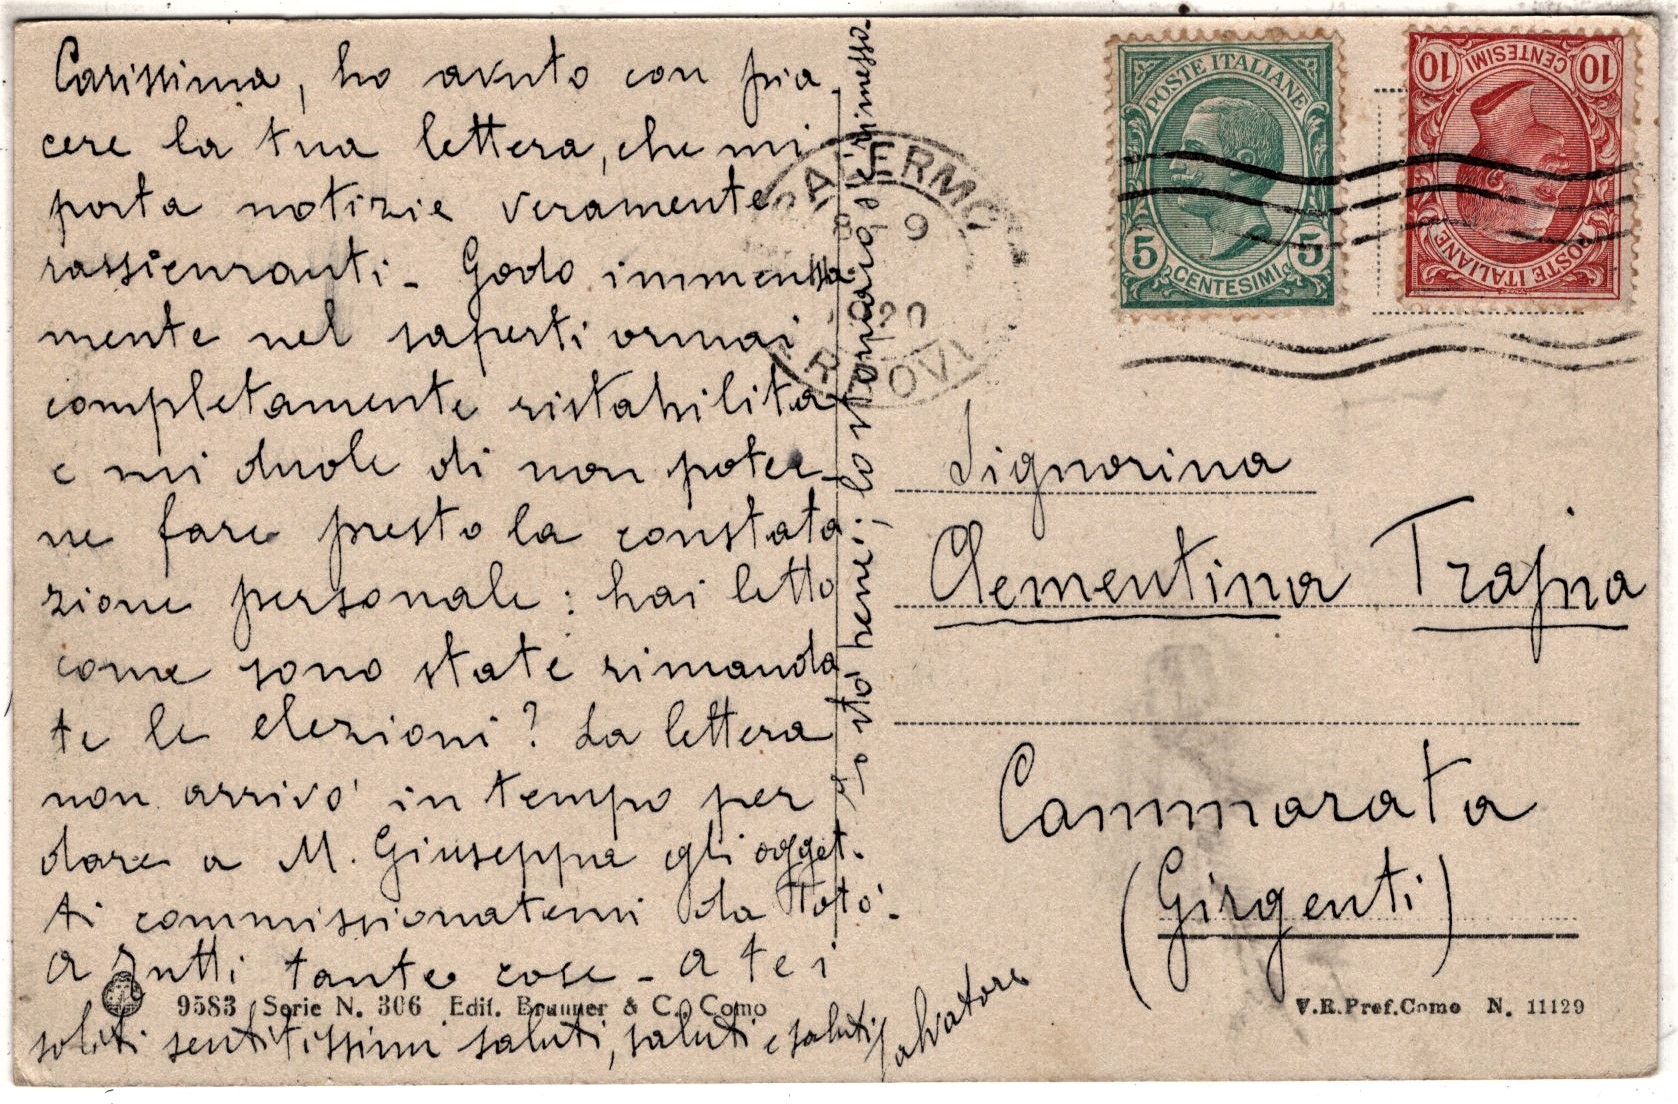 Carissima, ho avuto con pia
cere la tua lettera, che mi
porta notizie veramente
rassicuranti - Godo immensa
mente nel saperti ormai
completamente ristabilita
e mi duole di non poter-
ne fare presto la constata
zione personale: hai letto
come sono state rimanda
te le elezioni? La lettera
non arrivò in tempo per
dare a M. Giuseppa gli ogget-
ti commissionatemi da Totò -
A tutti tante cose - a te i
soliti sentitissimi saluti, saluti e saluti
Salvatore
Io stò bene; lo stomaco s'è rimesso
PALERMO
8 9
1920
FERROVIA
POSTE ITALIANE
5 5
CENTESIMI
POSTE ITALIANE
10 10
CENTESIMI
Signorina
Clementina Trajna
Cammarata
(Girgenti)
9583 Serie N. 306 Edit. Brunner & C., Como
V.R.Pref.Como N. 11129